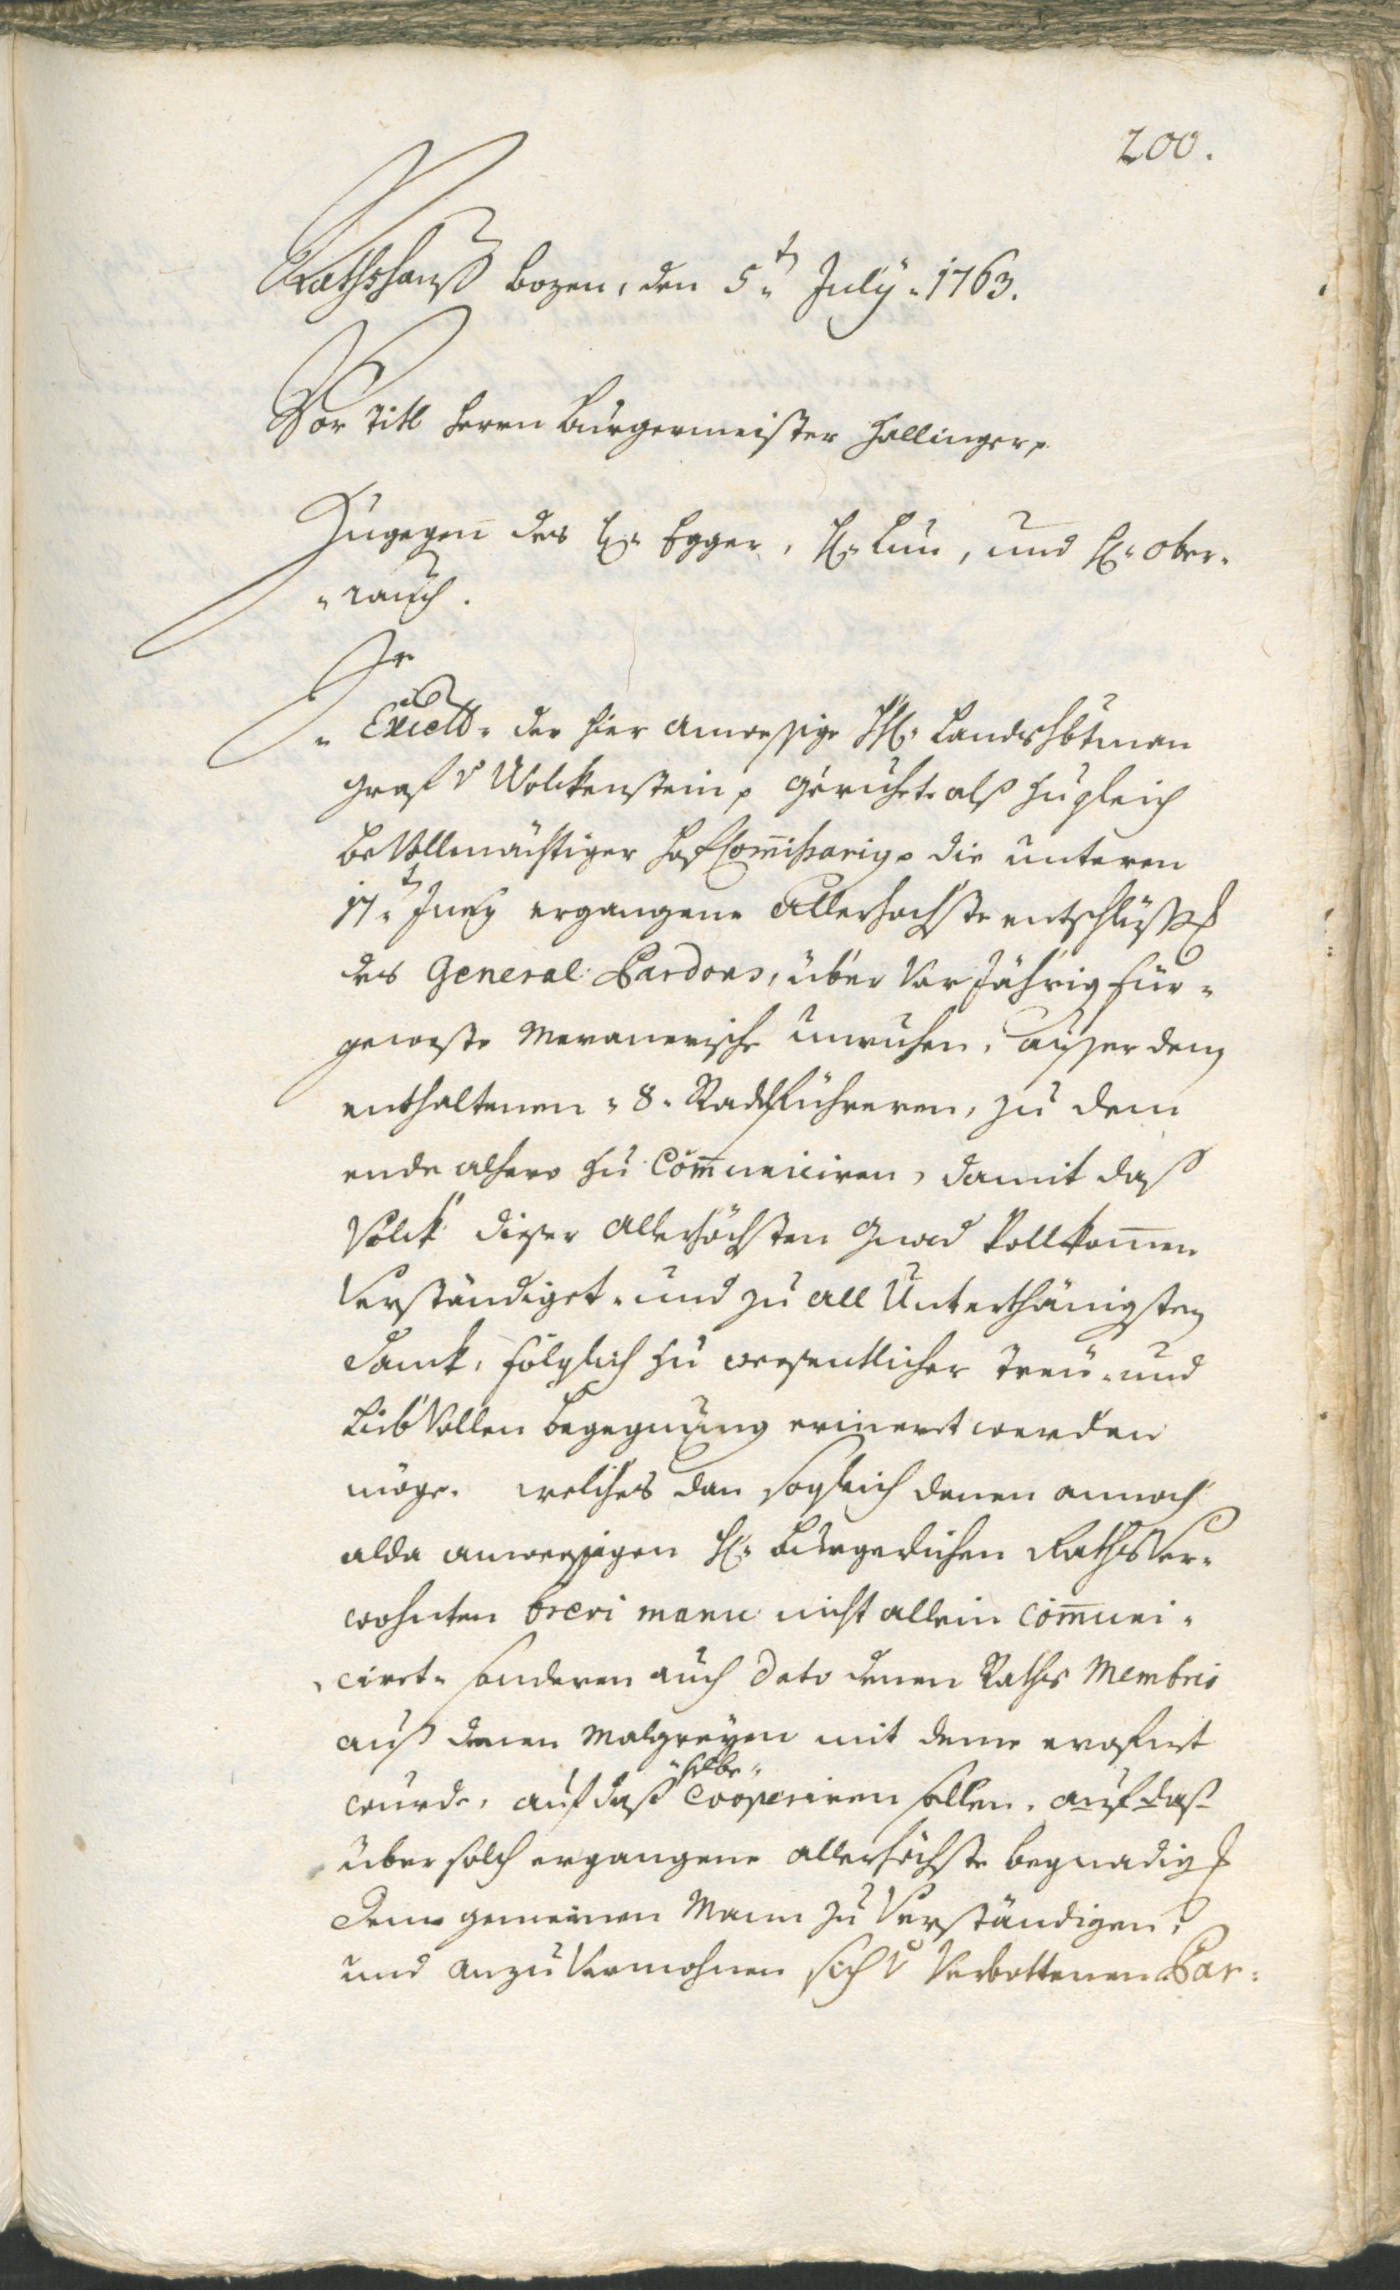 200.
Rathshauß Bozen, den 5.t July. 1763.
Vor Titl Herrn Burgermeister Hallinger p.
Zugegen des H. Egger, H. Lun, und H. Ober-
-rauch.
Sr
Excell. der hier anweßige HH. Landshbtman
Graf v Wolckenstein p geruhete alß zugleich
bevollmächtiger HofCom̄issarig. die unteren
17.t Juny ergangene Allerhochste entschlüß
des General Pardons, über Vorjährig für-
geweste Meranerische Unruhen, ausser deny
enthaltenen 8. Radlführeren, zu dem
ende alhero zu Com̄uniciren, damit daß
Volck dißer Allerhöchsten Gnad Vollkom̄en
Verständiget. und zu all Unterthänigsten
danck, folglich zu wesentlicher Treu- und
Liebvollen begegnung erinert werden
möge. welches dan sogleich denen annoch
alda anweßigen H. Burgerlichen RathsVer-
wohnten brevi manu nicht allein com̄uni-
cirt. sonderen auch dato denen Raths Membris
auß denen Malgreyen mit deme erofnet
wurde, auf daß selbe cooperiren sollen. auf daß
über solch ergangene allerhöchste begnadig
dem gemeinen Mann zu Verständigen,
und anzuvermohnen sich v Verbottenen Par-